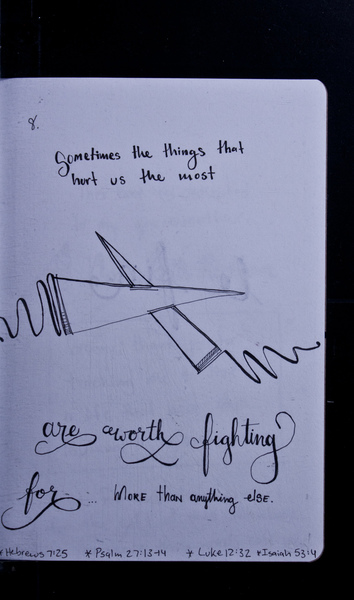 8.
Sometimes the things that
hurt us the most
are worth fighting
for... More than anything else.
*Hebrews 7:25 * Psalm 27:13-14 * Luke 12:32 * Isaiah 53:4